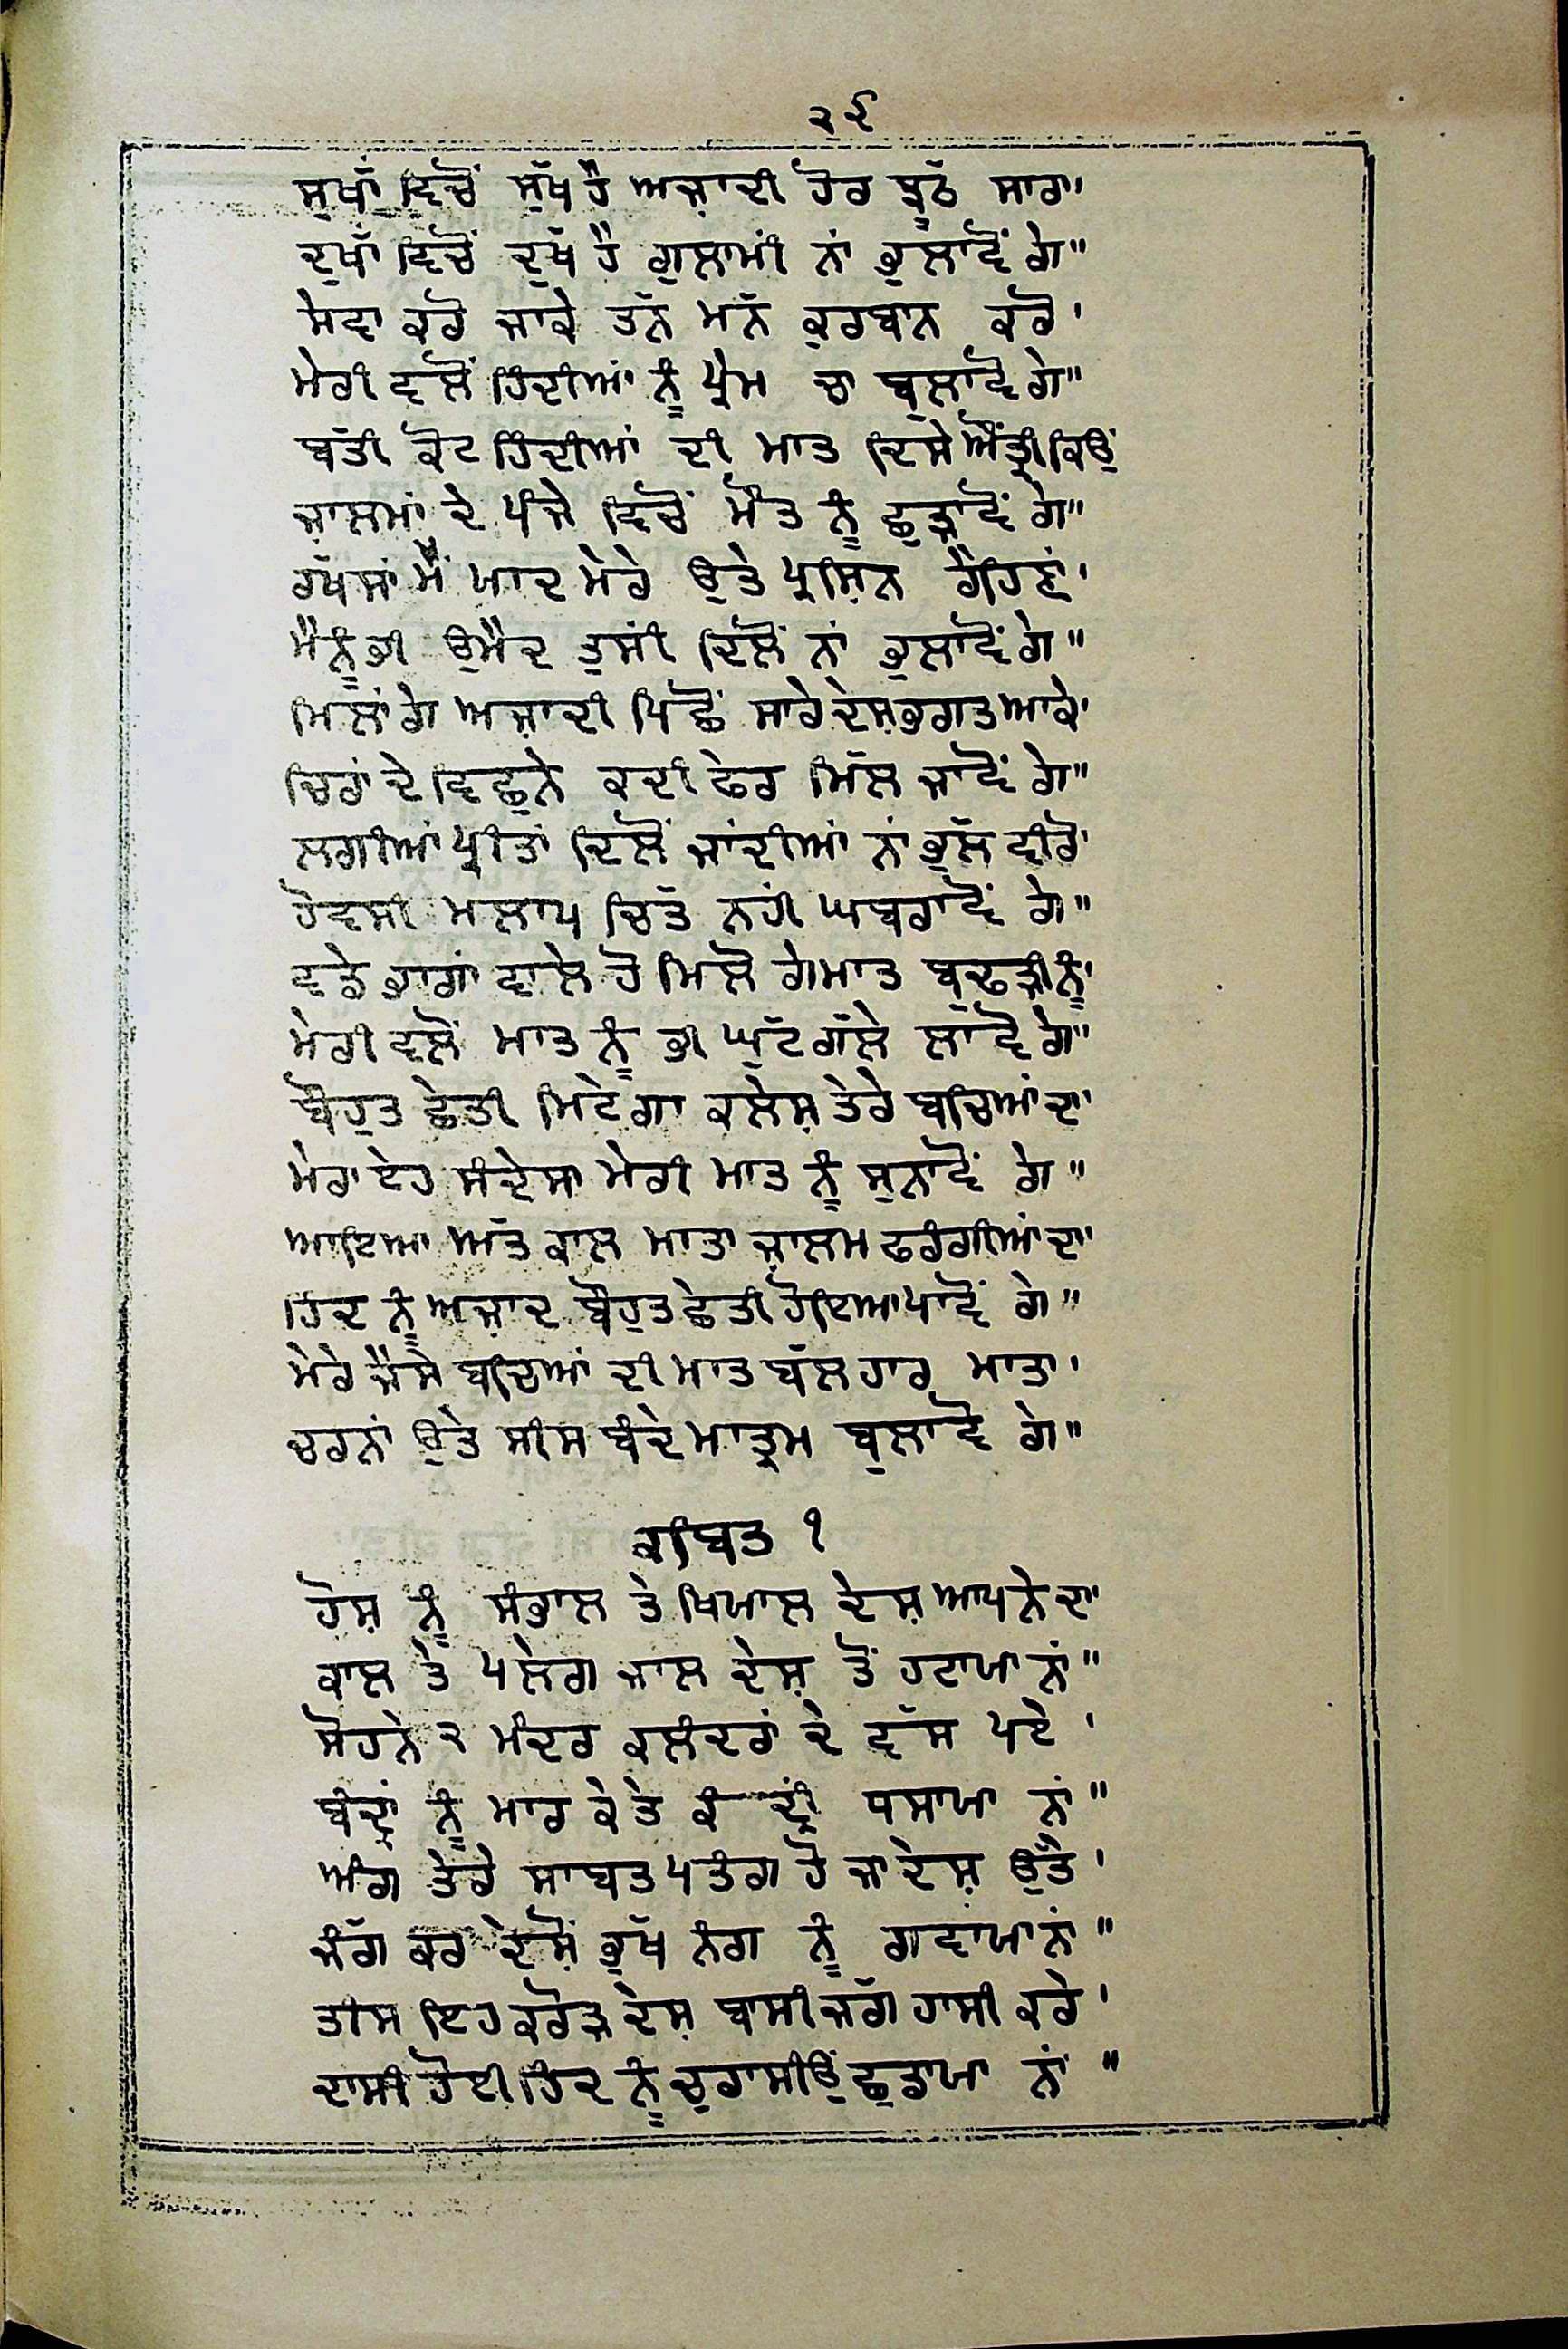 ੨੬
ਸੁਖਾਂ ਵਿਚੋਂ ਸੁੱਖ ਹੈ ਅਜ਼ਾਦੀ ਹੋਰ ਝੂਠ ਸਾਰਾ'
ਦੁਖਾਂ ਵਿਚੋਂ ਦੁਖੱ ਹੈ ਗੁਲਾਮੀਂ ਨਾਂ ਭੁਲਾਵੋਂ ਗੇ"
ਸੇਵਾ ਕਰੋ ਜਾਕੇ ਤਨੱ ਮਨੱ ਕੁਰਬਾਨ ਕਰੋ'
ਮੇਰੀ ਵਲੋਂ ਹਿੰਦੀਆਂ ਨੂੰ ਪ੍ਰੇਮ ਚਾ ਬੁਲਾਵੋ ਗੇ"
ਬੱਤੀ ਕੋਟ ਹਿੰਦੀਆਂ ਦੀ ਮਾਤ ਦਿਸੇ ਔਂਤ੍ਰੀ ਕਿਉਂ
ਜ਼ਾਲਮਾਂ ਦੇ ਪੰਜੇ ਵਿਚੋਂ ਮੌਤ ਨੂੰ ਛੁੜਾਵੋਂ ਗੇ"
ਰੱਖਸਾਂ ਮੈਂ ਯਾਦ ਮੇਰੇ ਉਤੇ ਪ੍ਰਸ਼ਿੰਨ ਰੈਹਿਣਾਂ'
ਮੈਨੂੰ ਭੀ ਉਮੈਦ ਤੁਸੀਂ ਦਿਲੋਂ ਨਾਂ ਭੁਲਾਵੋਂ ਗੇ"
ਮਿਲਾਂਗੇ ਅਜ਼ਾਦੀ ਪਿਛੋਂ ਸਾਰੇ ਦੇਸ਼ ਭਗਤ ਆਕੇ'
ਚਿਰਾਂ ਦੇ ਵਿਛੁਨੇ ਕਦੀ ਫੇਰ ਮਿੱਲ ਜਾਵੋਂ ਗੇ"
ਲਗੀਆਂ ਪ੍ਰੀਤਾਂ ਦਿਲੋਂ ਜਾਂਦੀਆਂ ਨਾਂ ਭੁਲੱ ਵੀਰੋ'
ਹੋਵਸੀ ਮਲਾਪ ਚਿਤੱ ਨਹੀਂ ਘਬਰਾਵੋਂ ਗੇ"
ਵਡੇ ਭਾਗਾਂ ਵਾਲੇ ਹੋ ਮਿਲੋ ਗੇ ਮਾਤ ਬੁਢੜੀ ਨੂੰ'
ਮੇਰੀ ਵਲੋਂ ਮਾਤ ਨੂੰ ਭੀ ਘੁੱਟ ਗੱਲੇ ਲਾਵੋ ਗੇ"
ਬੌਹੁਤ ਛੇਤੀ ਮਿਟੇਗਾ ਕਲੇਸ਼ ਤੇਰੇ ਬਚਿਆਂ ਦਾ'
ਮੇਰਾ ਏਹ ਸੰਦੇਸਾ ਮੇਰੀ ਮਾਤ ਨੂੰ ਸੁਨਾਵੋਂ ਗੇ"
ਆਇਆ ਅੱਤ ਕਾਲ ਮਾਤਾ ਜ਼ਾਲਮ ਫਰੰਗੀਆਂ ਦਾ'
ਹਿੰਦ ਨੂੰ ਅਜ਼ਾਦ ਬੌਹੁਤ ਛੇਤੀ ਹੋਇਆ ਪਾਵੋਂ ਗੇ"
ਮੇਰੇ ਜੈਸੇ ਬੰਦਿਆਂ ਦੀ ਮਾਤ ਬੱਲ ਹਾਰ ਮਾਤਾ'
ਚਰਨਾਂ ਉਤੇ ਸੀਸ ਬੰਦੇ ਮਾਤ੍ਰਮ ਬੁਲਾਵੋ ਗੇ"
ਕਬਿਤ ੧
ਹੋਸ਼ ਨੂੰ ਸੰਭਾਲ ਤੇ ਖਿਯਾਲ ਦੇਸ਼ ਆਪਨੇ ਦਾ'
ਕਾਲ ਤੇ ਪਲੇਗ ਜਾਲ ਦੇਸ਼ ਤੋਂ ਹਟਾਯਾ ਨਾਂ"
ਸੋਹਨੇ ੨ ਮੰਦਰ ਕਲੰਦਰਾਂ ਦੇ ਵੱਸ ਪਏ'
ਬੰਦ੍ਰਾਂ ਨੂੰ ਮਾਰ ਕੇ ਤੇ ਕੰਦ੍ਰੀਂ ਧਸਾਯਾ ਨਾਂ"
ਅੰਗ ਤੇਰੇ ਸਾਬਤ ਪਤੰਗ ਹੋ ਜਾ ਦੇਸ਼ ਉੱਤੇ'
ਜੰਗ ਕਰ ਦੇਸ਼ੋਂ ਭੁਖੱ ਨੰਗ ਨੂੰ ਗਵਾਯਾ ਨਾਂ"
ਤੀਸ ਇਹ ਕਰੋੜ ਦੇਸ਼ ਬਾਸੀ ਜਗੱ ਹਾਸੀ ਕਰੇ'
ਦਾਸੀ ਹੋਈ ਹਿੰਦ ਨੂੰ ਚੁਰਾਸੀਉਂ ਛੁਡਾਯਾ ਨਾਂ"